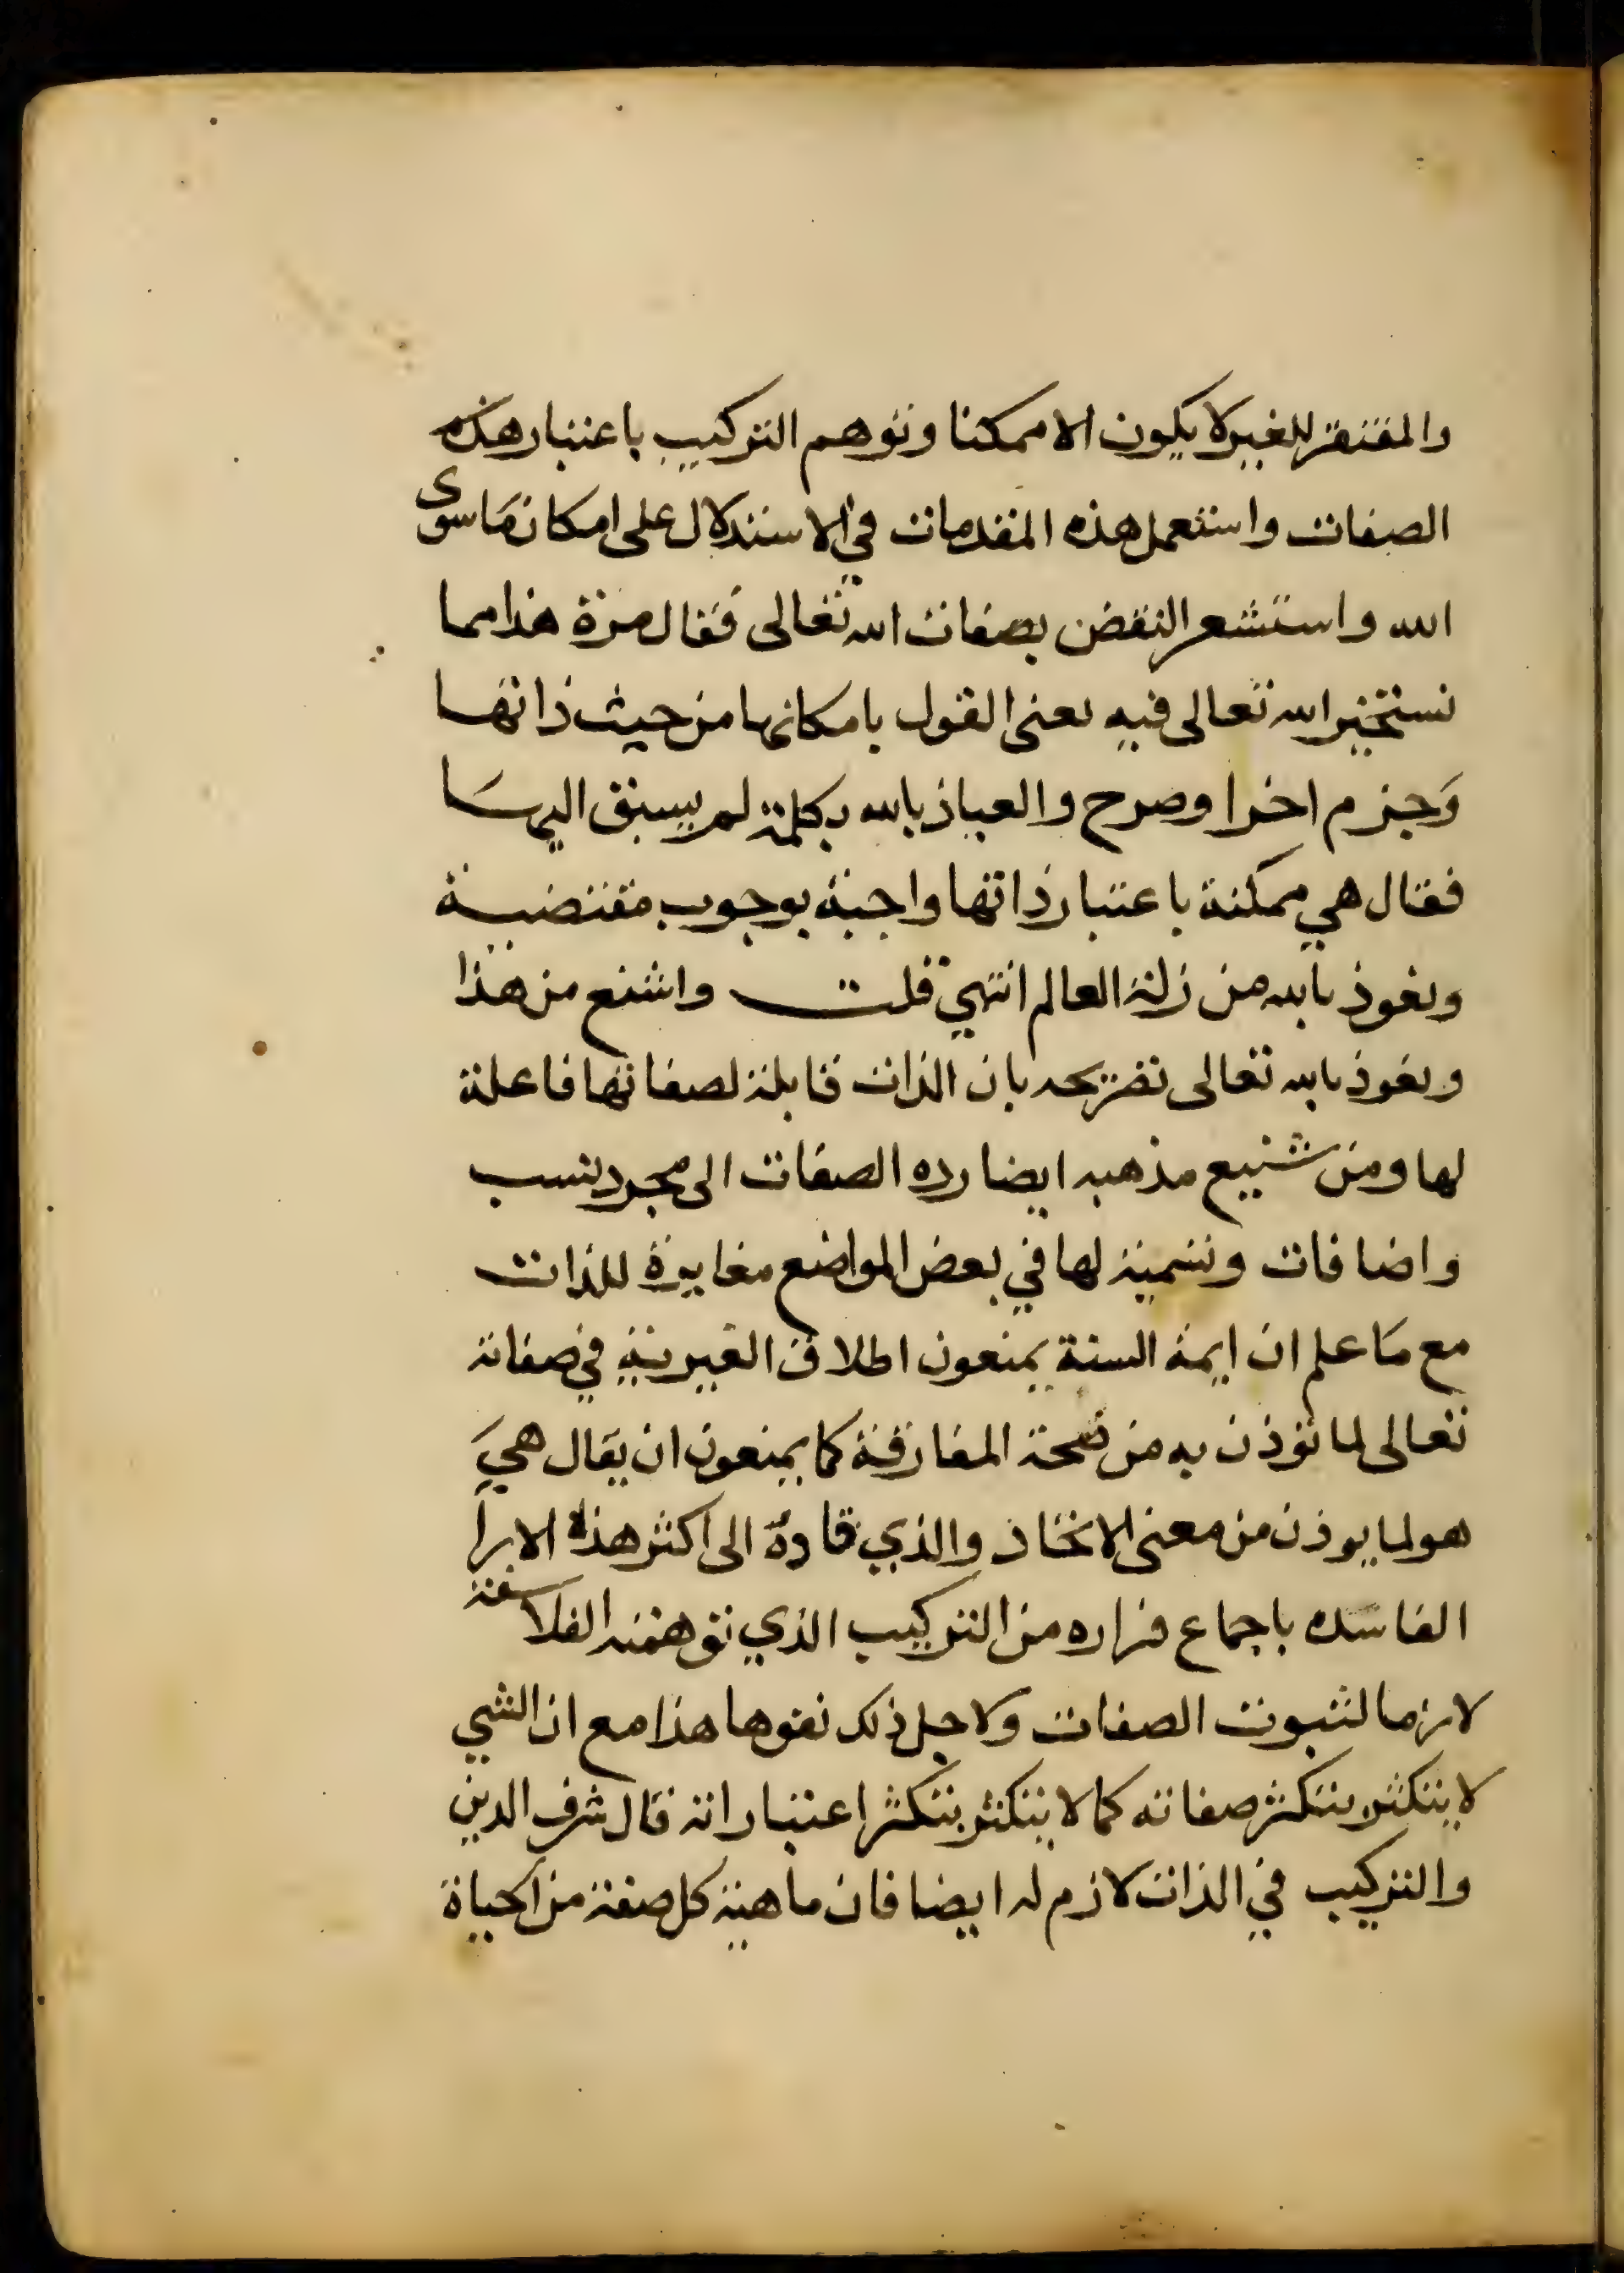 والمفتقر للغير لا يكون الا ممكنا وتوهم التركيب باعتبار هذه
الصفات واستعمل هذه المقدمات في الاستدلال على امكان ما سوى
الله واستشعر النقض بصفات الله تعالى فقال مرة هذا مما
نستخير الله تعالى فيه يعنى القول بامكانها من حيث ذاتها
وَجزم اخرا وصرح والعياذ بالله بكلمة لم يسبق اليها
فقال هي ممكنة باعتبار ذاتها واجبة بوجوب مقتضية
ونعوذ بالله من زلة العالم انتهي قلت واشنع من هذا
ونعوذ بالله تعالى تصريحه بان الذات قابلة لصفاتها فاعلة
لها ومن شنيع مذهبه ايضا رده الصفات الى مجرد نسب
واضافات وتسمية لها في بعض المواضع مغايرة للذات
مع مَا علم ان ايمة السنة يمنعون اطلاق الغيرية في صفاته
تعالى لما توذن به من صحة المفارقة كما يمنعون ان يقال هيَ
هو لما يوذن من معنى الاتحاد والذي قاده الى اكثر هذه الارا
الفاسَده باجماع فراره من التركيب الذي توهمته الفلاسفة
لازما لثبوت الصفات ولاجل ذلك نفوها هذا مع ان الشي
لا يتكثر بتكثر صفاته كما لا يتكثر بتكثر اعتباراته قال شرف الدين
والتركيب في الذات لازم له ايضا فان ماهية كل صفة من الحياة